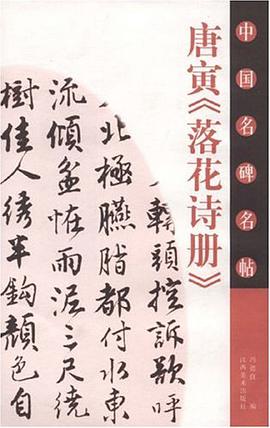 中国名碑名帖
唐寅《落花诗册》
轉頭控訴歡呼
北極臙脂都付水東
流傾盆怪雨泥三尺繞
樹佳人繡半鈎顏色自
编
江西美术出版社